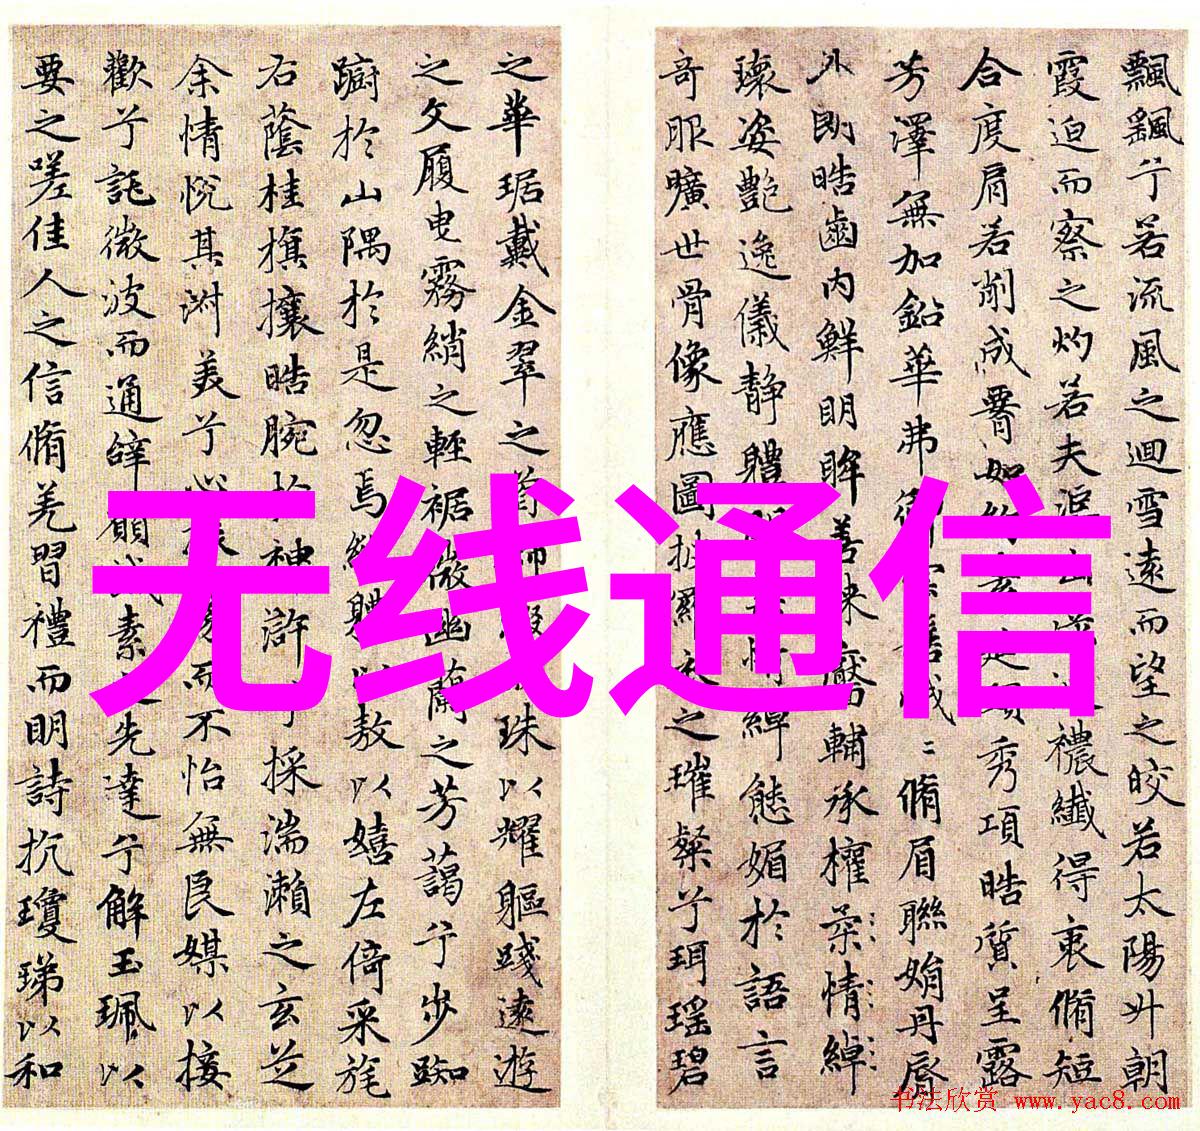 飄飖兮若流風之迴雪遠而望之皎若太陽升朝
霞迫而察之灼若夫襛纖得衷脩短
合度肩若削成腰如約素延頸秀項皓質呈露
芳澤無加鉛華弗御脩眉聯娟丹唇
外朗皓齒內鮮明眸善睞靨輔承權柔情綽
瓌姿艷逸儀靜體情綽態媚於語言
奇服曠世骨像應圖披羅衣之璀粲兮珥瑤碧
之華琚戴金翠之首飾綴珠以耀軀踐遠遊
之文履曳霧綃之輕裾微幽蘭之芳藹兮步踟
躕於山隅於是忽焉縱體以敖以嬉左倚采旄
右蔭桂旗攘皓腕於神滸兮採湍瀨之玄芝
余情悅其淑美兮心而不怡無良媒以接
歡兮託微波而通辭願誠素之先達兮解玉珮以
要之嗟佳人之信脩羌習禮而明詩抗瓊珶以和
无线通信
书法欣赏 www.yac8.com